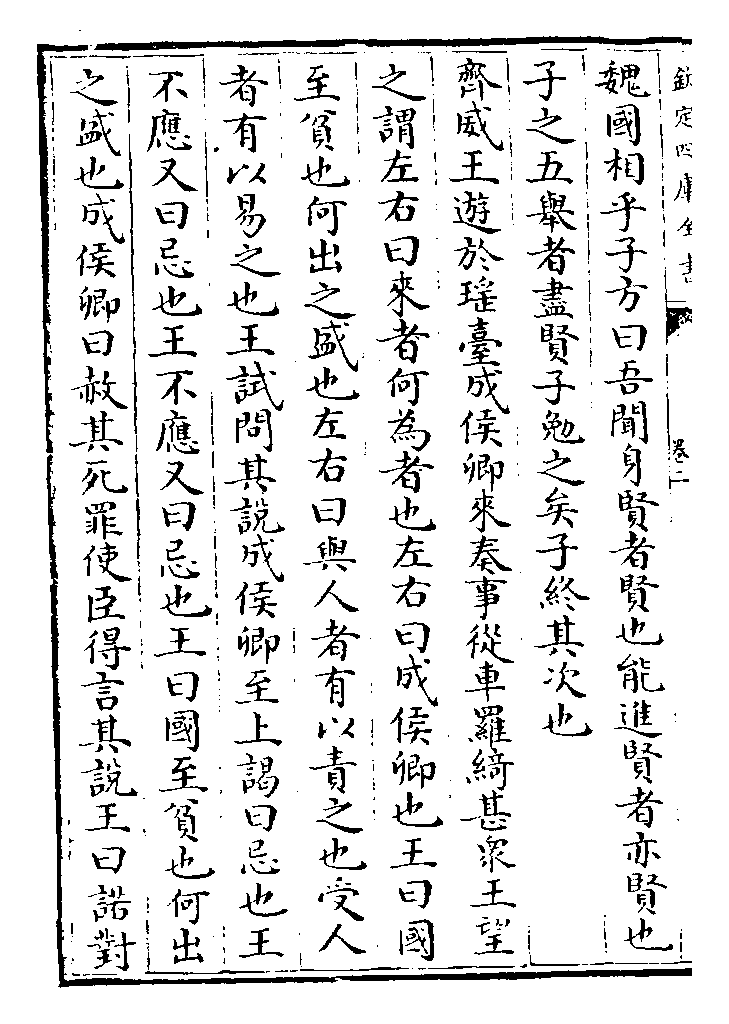 欽定四庫全書
卷二
魏國相乎子方曰吾聞身賢者賢也能進賢者亦賢也
子之五舉者盡賢子勉之矣子終其次也
齊威王遊於瑤臺成侯卿來奏事從車羅綺甚衆王望
之謂左右曰來者何為者也左右曰成侯卿也王曰國
至貧也何出之盛也左右曰與人者有以責之也受人
者有以易之也王試問其說成侯卿至上謁曰忌也王
不應又曰忌也王不應又曰忌也王曰國至貧也何出
之盛也成侯卿曰赦其死罪使臣得言其說王曰諾對